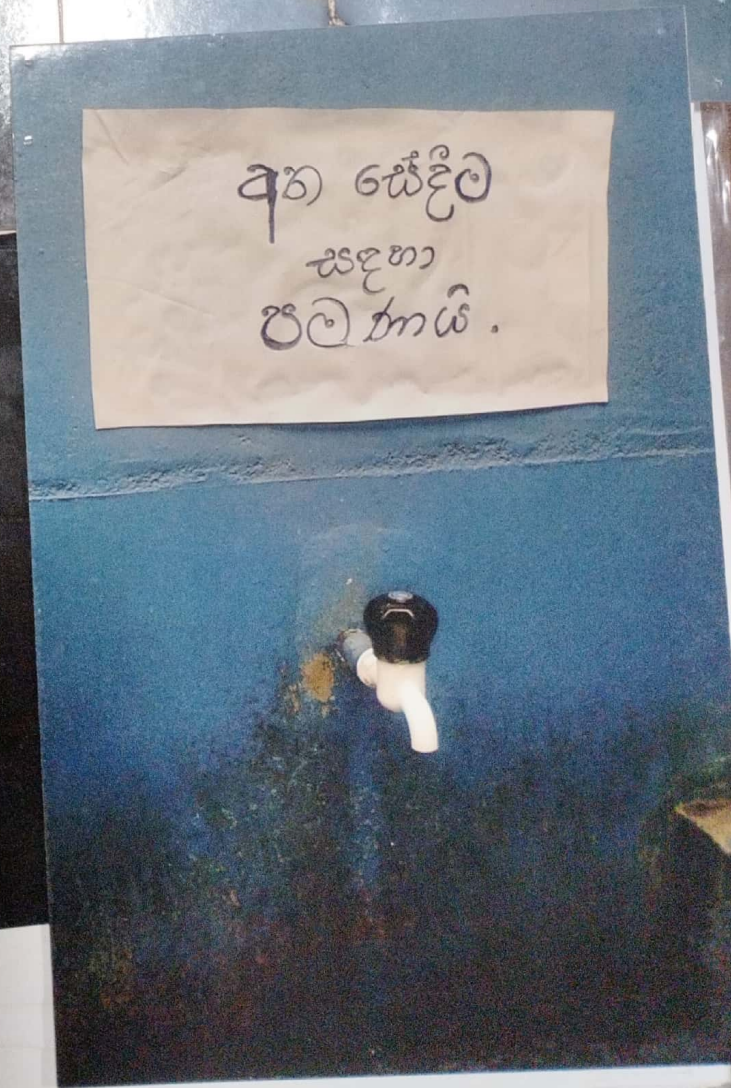 අත සේදීම
සඳහා
පමණයි.